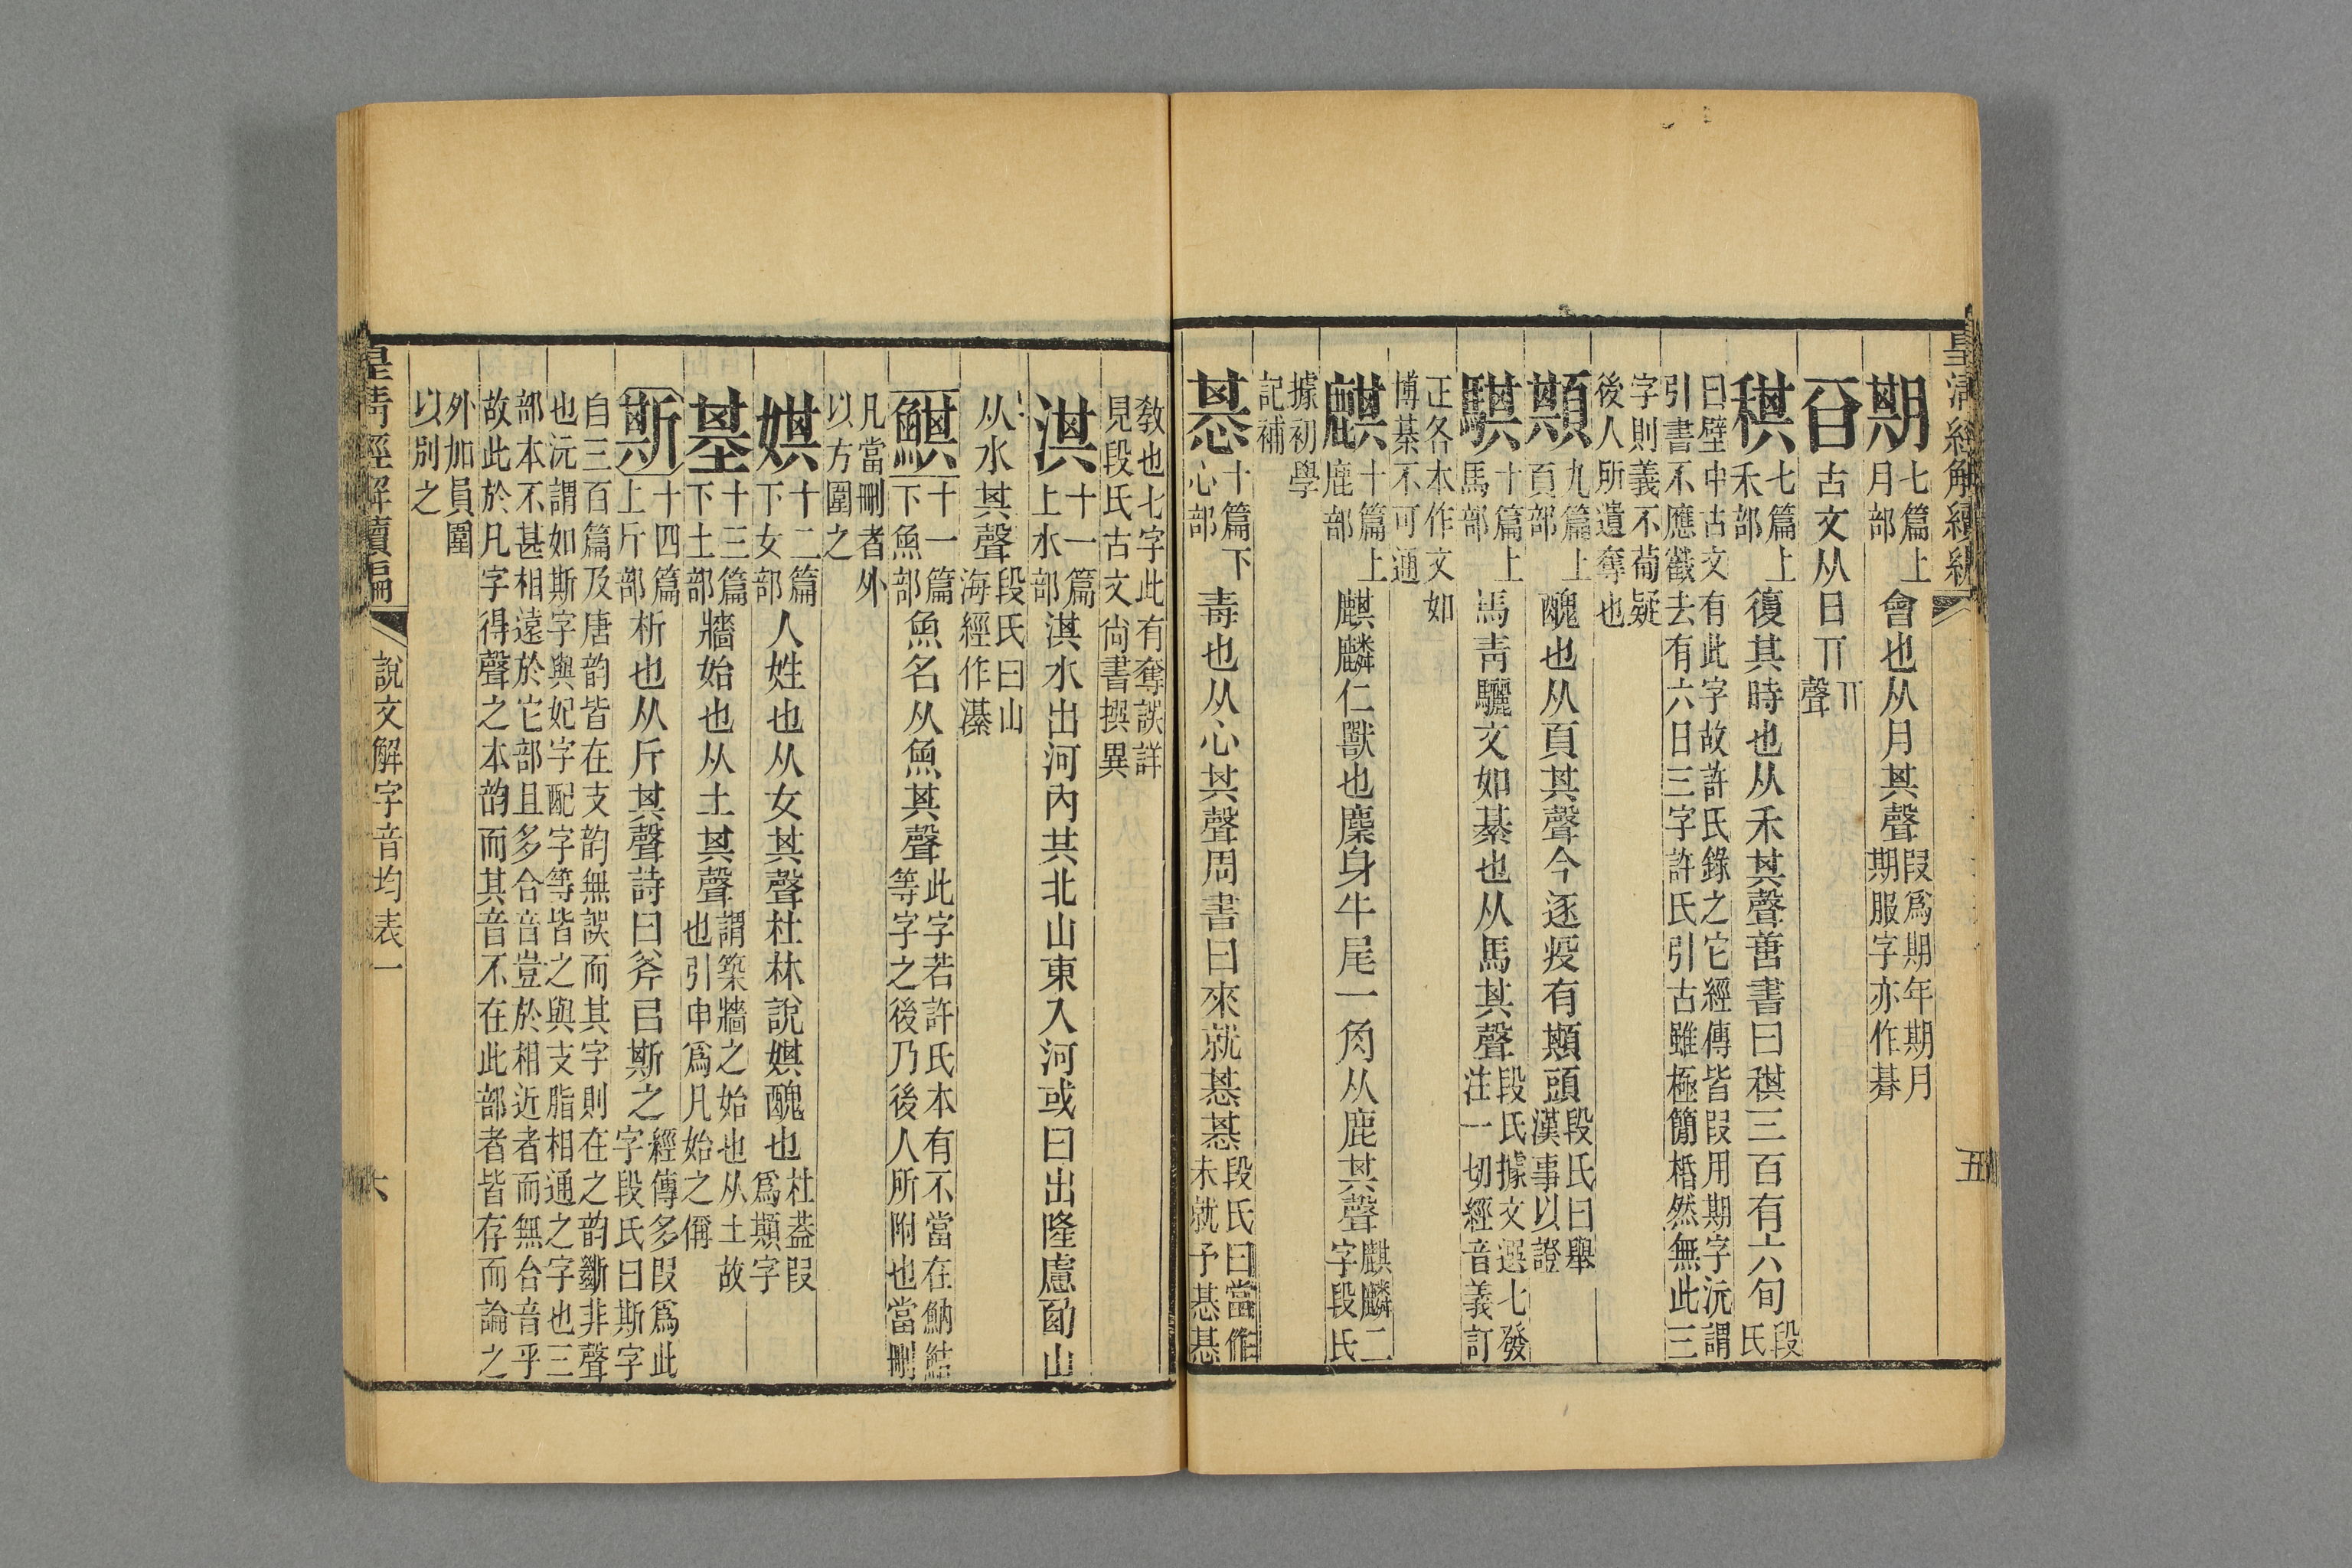 皇清經解續編
五
期七篇上月部會也从月其聲叚爲期年期月期服字亦作朞
古文从日丌丌聲
稘七篇上禾部復其時也从禾其聲唐書曰稘三百有六旬段氏
曰壁中古文有此字故許氏錄之它經傳皆叚用期字沅謂
引書不應截去有六日三字許氏引古雖極簡桰然無此三
字則義不葡疑
後人所遺奪也
顛九篇上頁部醜也从頁其聲今逐疫有顛頭段氏曰舉漢事以證
騏十篇上馬部馬靑驪文如綦也从馬其聲段氏據文選七發注一切經音義訂
正各本作文如
博棊不可通
麒十篇上鹿部麒麟仁獸也麋身牛尾一角从鹿其聲麒麟二字段氏
據初學
記補
惎十篇下心部毒也从心其聲周書曰來就惎惎段氏曰當作未就予惎惎
敎也七字此有奪誤詳
見段氏古文尙書撰異
淇十一篇上水部淇水出河內共北山東入河或曰出隆慮西山
从水其聲段氏曰山海經作濝
鯕十一篇下魚部魚名从魚其聲此字若許氏本有不當在魶鮚等字之後乃後人所附也當刪
凡當刪者外
以方圍之
娸十二篇下女部人姓也从女其聲杜林說娸醜也杜葢叚爲顛字
基十三篇下土部牆始也从土其聲謂築牆之始也从土故也引申爲凡始之偁
斯十四篇上斤部析也从斤其聲詩曰斧㠯斯之經傳多叚爲此字段氏曰斯字
自三百篇及唐韵皆在支韵無誤而其字則在之韵斷非聲
也沅謂如斯字與妃字配字等皆之與支脂相通之字也三
部本不甚相遠於它部且多合音豈於相近者而無合音乎
故此於凡字得聲之本韵而其音不在此部者皆存而論之
外加員圍
以別之
皇清經解續編
說文解字音均表一
六